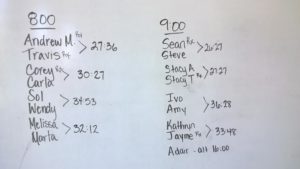 8:00
Andrew M. Rx
Travis Rx
> 27:36
Corey Rx
Carla
> 30:27
Sol
Wendy
> 34:53
Melissa
Marta
> 32:12
9:00
Sean Rx
Steve
> 26:27
Stacy A
Stacy T Rx
> 27:27
Ivo
Amy
> 36:28
Kathryn
Jayme Rx
> 33:48
Adair - alt 16:00